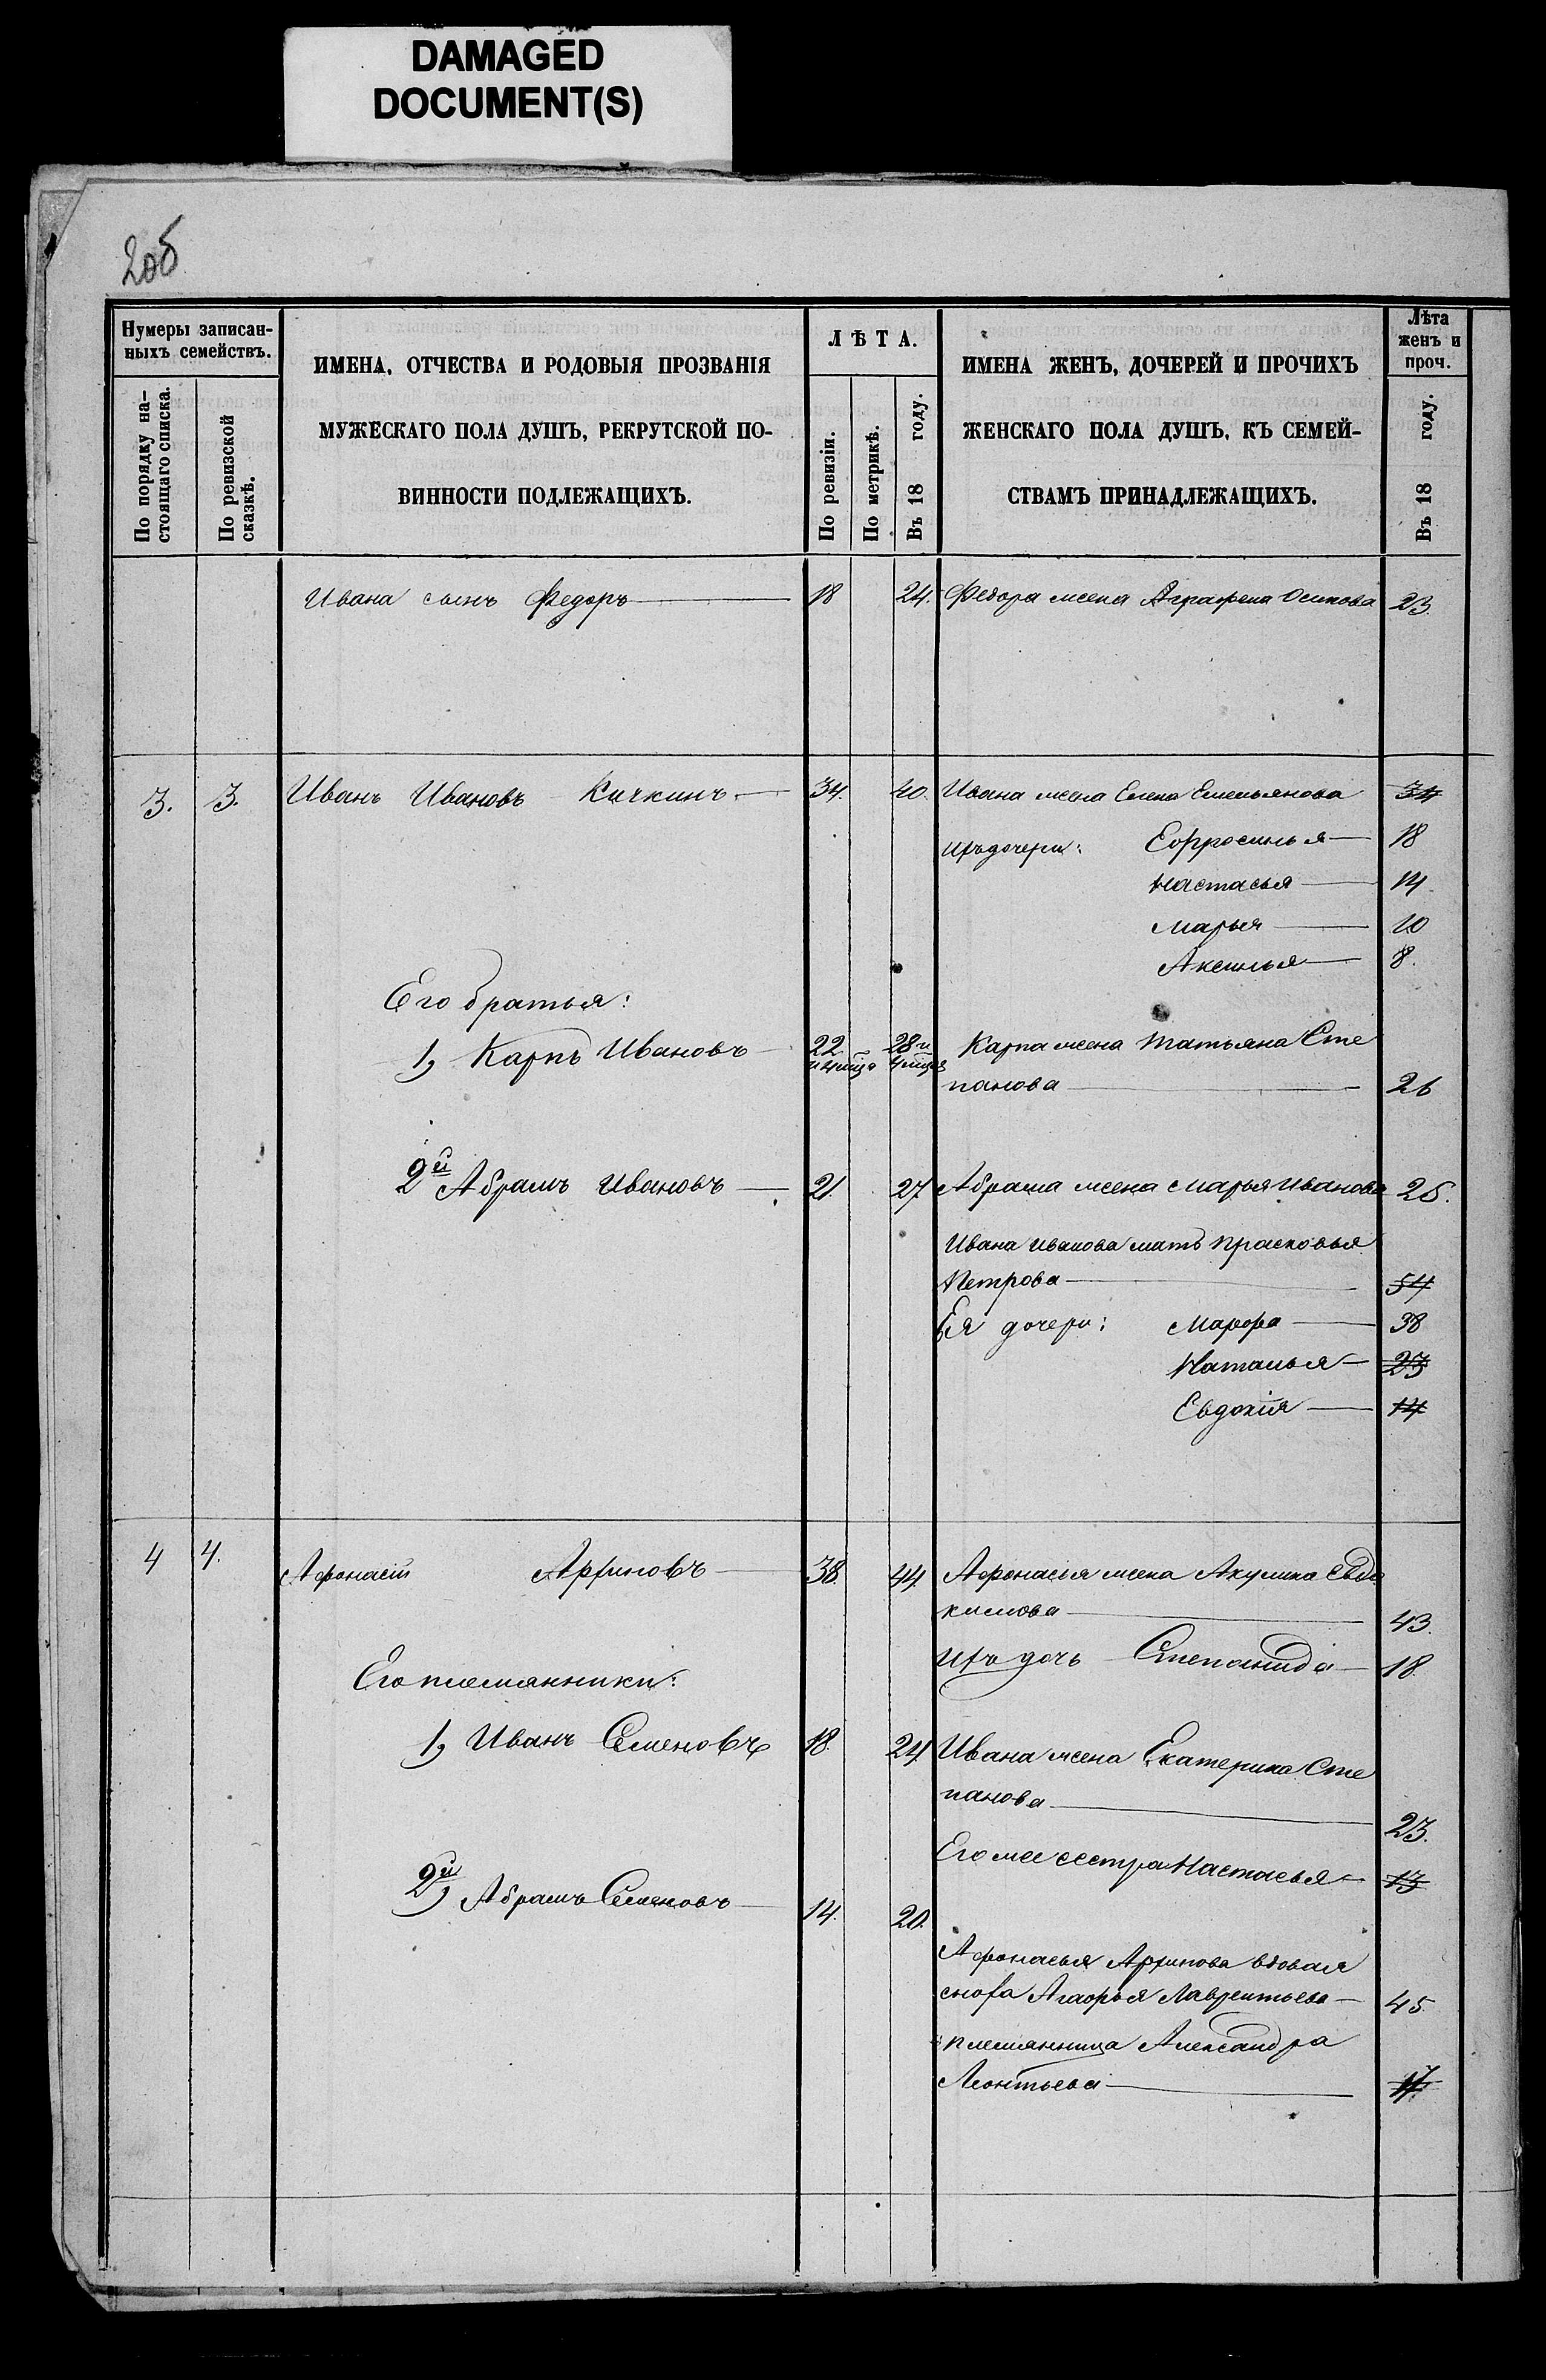 DAMAGED
DOCUMENT(S)
205
Нумеры записан-
ныхъ семействъ.
По порядку на-
стоящаго списка.
По ревизской
сказкѣ.
ИМЕНА, ОТЧЕСТВА И РОДОВЫЯ ПРОЗВАНІЯ
МУЖЕСКАГО ПОЛА ДУШЪ, РЕКРУТСКОЙ ПО-
ВИННОСТИ ПОДЛЕЖАЩИХЪ.
ЛѢТА.
По ревизіи.
По метрикѣ.
Въ 18 году.
ИМЕНА ЖЕНЪ, ДОЧЕРЕЙ И ПРОЧИХЪ
ЖЕНСКАГО ПОЛА ДУШЪ, КЪ СЕМЕЙ-
СТВАМЪ ПРИНАДЛЕЖАЩИХЪ.
Лѣта
женъ и
проч.
Въ 18 году.
Ивана сынъ Федоръ 18 24. Федора жена Аграфена Осипова 23.
3. 3. Иванъ Ивановъ Кичкинъ 34. 40. Ивана жена Елена Емельянова 34
Ихъ дочери: Ефросинья 18
Настасья 14.
Марья 10
Аксинья 8.
Его братья:
1, Карпъ Ивановъ 22 28 и Карпа жена Татьяна Сте
панова 26
2й Абрамъ Ивановъ 21. 27 Абрама жена Марья Иванова 25.
Ивана Иванова мать Прасковья
Петрова 54
Ея дочери: Марфа 38
Наталья 23
Евдокія 14
4 4. Афонасій Архиповъ 38. 44. Афонасья жена Акулина Евдо
кимова 43.
Ихъ дочь Степанида 18.
Его племянники:
1, Иванъ Семеновъ 18. 24 Ивана жена Екатерина Сте
панова 23.
Его же сестра Настасья 13
2й, Абрамъ Семеновъ 14. 20.
Афонасья Архипова вдовая
сноха Агафья Лаврентьева 45.
племянница Александра
Леонтьева 17.